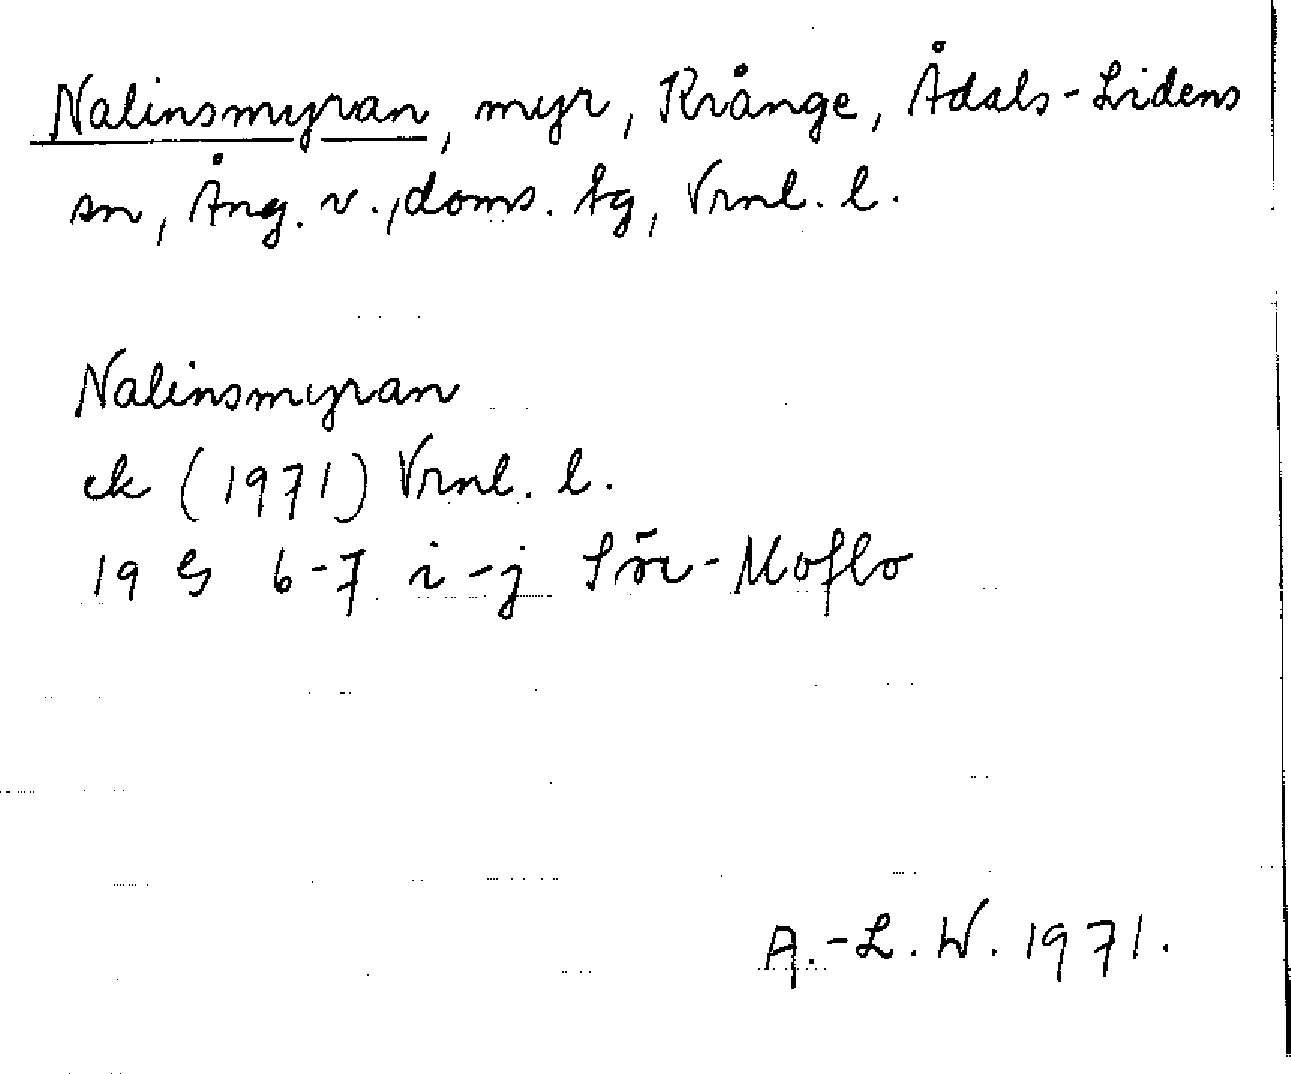 Nalinsmyran, myr, Krånge, Ådals-Lidens
sn, Ång. v., doms. tg, Vrnl. l.
Nalinsmyran
ek (1971) Vrnl. l.
19 G 6-7 i-j Sör-Moflo
A.-L. W. 1971.